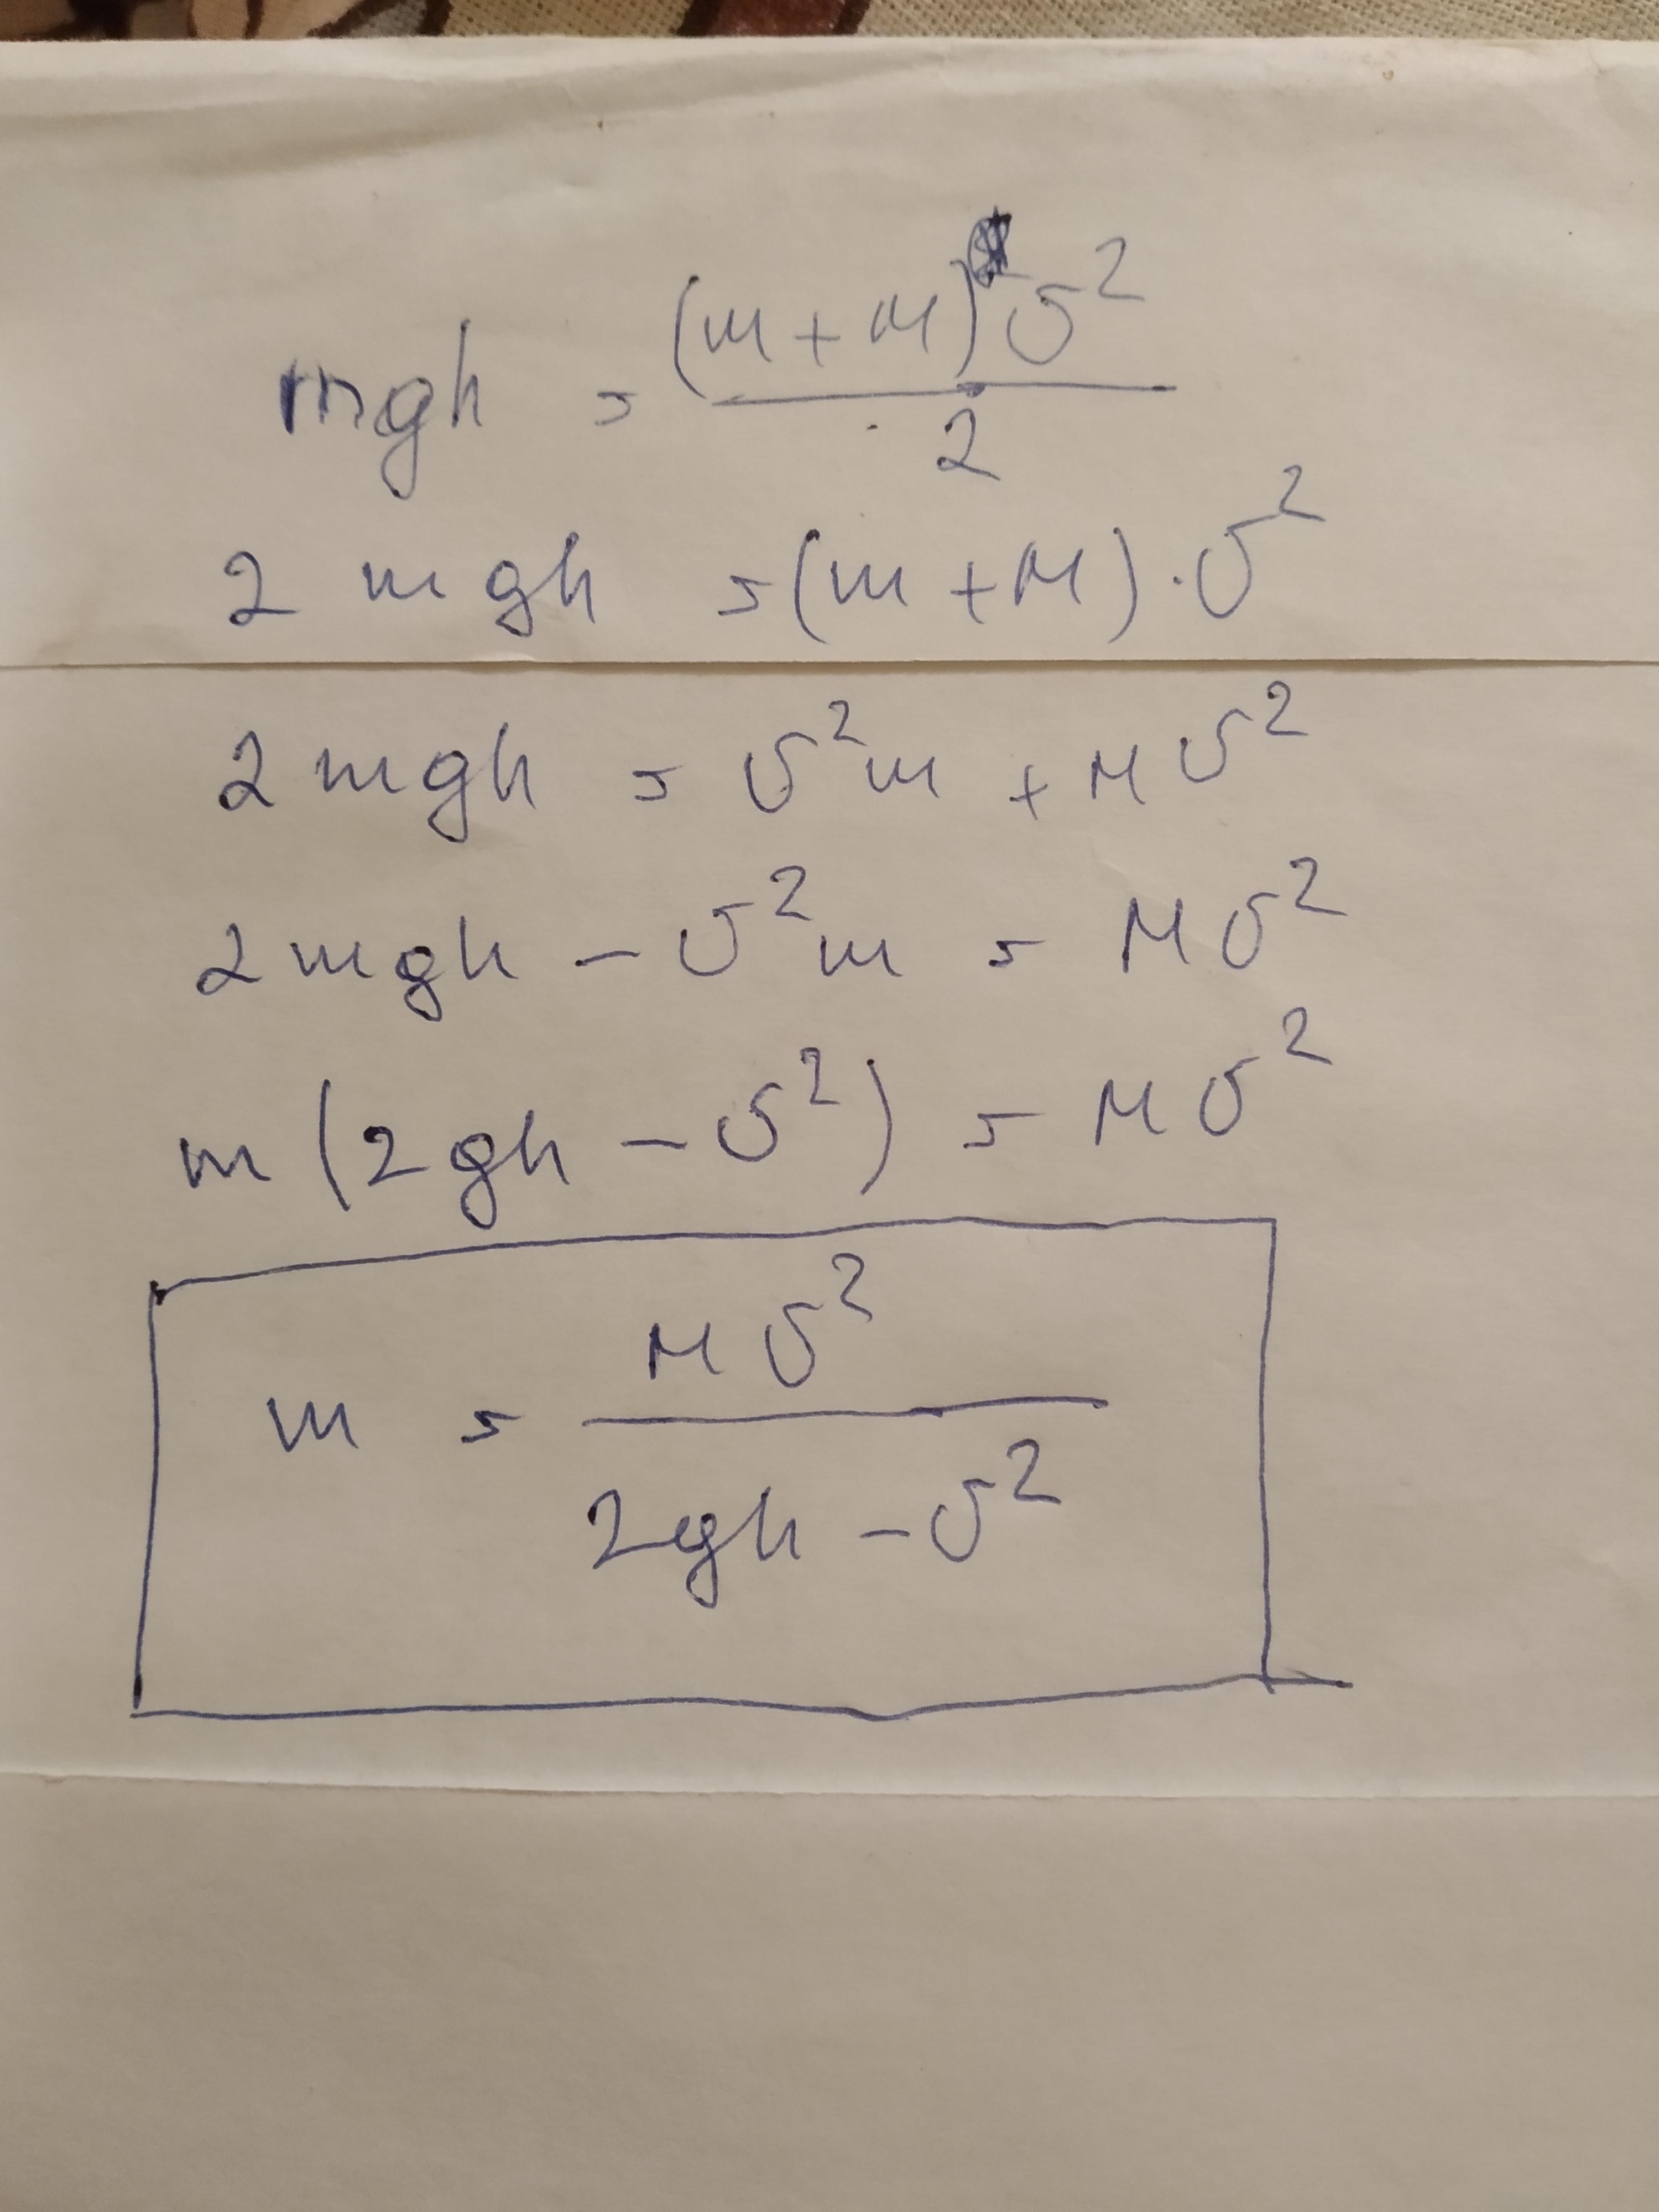 mgh = (m+M)υ²/2
2 mgh = (m+M)·υ²
2mgh = υ²m + Mυ²
2mgh - υ²m = Mυ²
m(2gh - υ²) = Mυ²
m = Mυ²/(2gh - υ²)